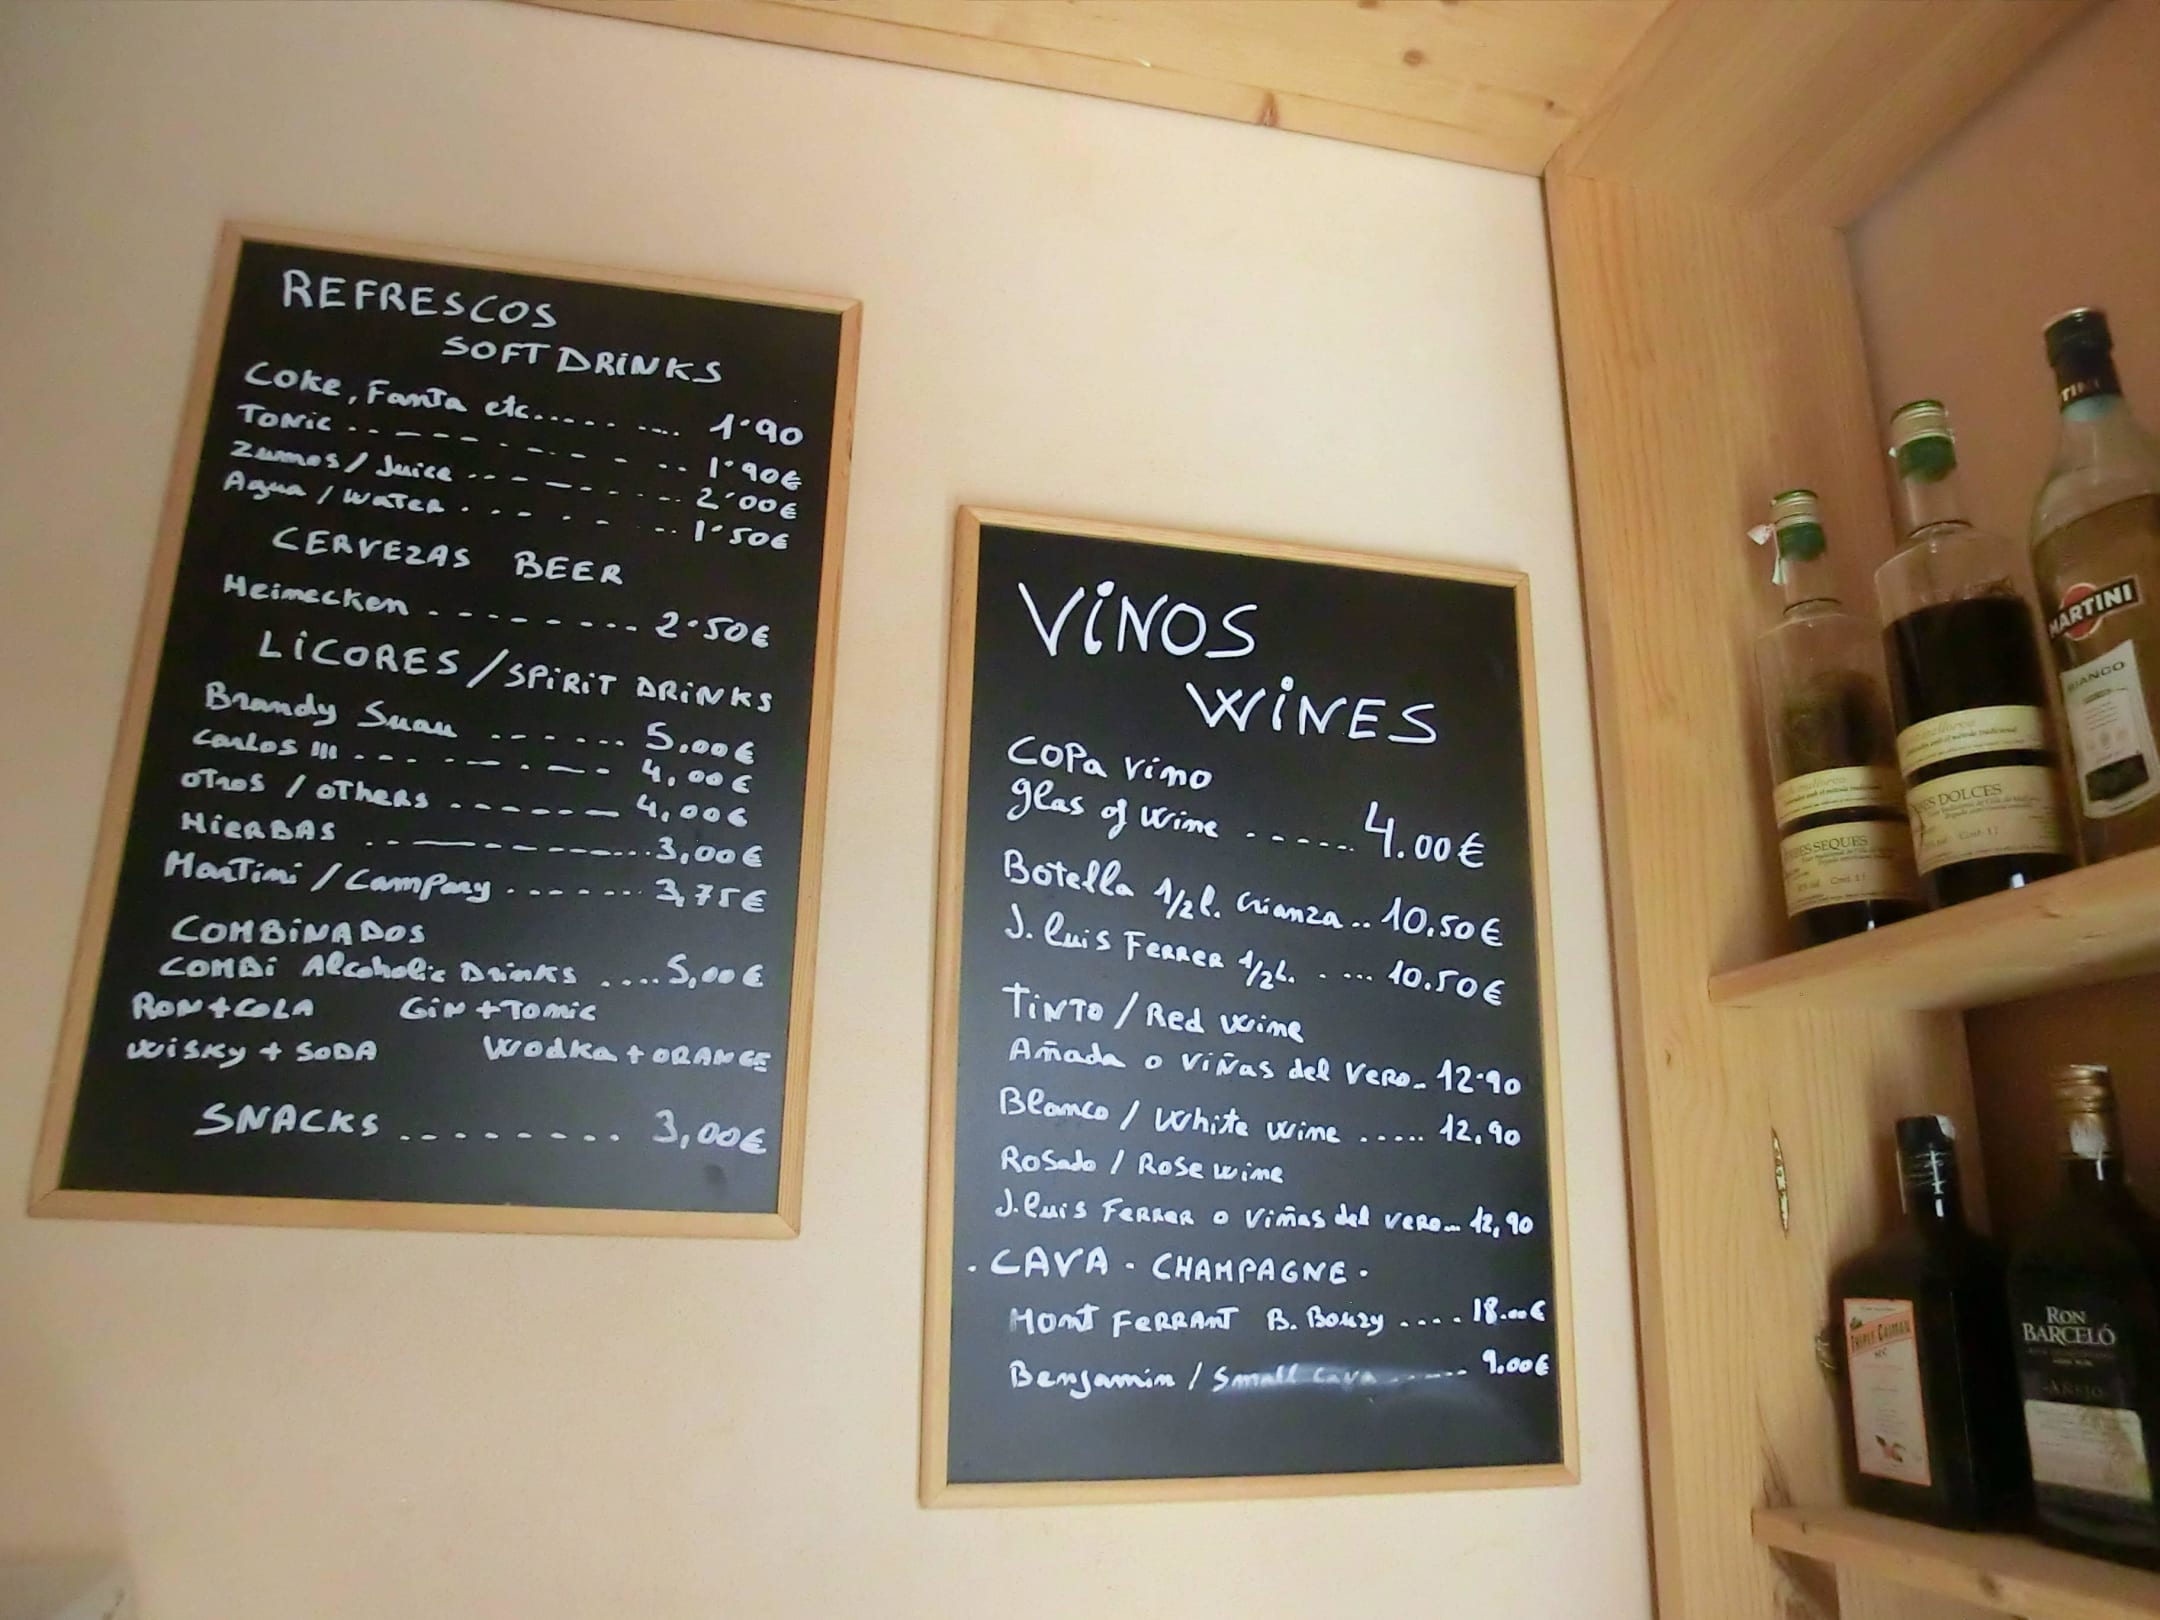 REFRESCOS
SOFT DRINKS
Coke, Fanta etc......... 1'90
Tonic .. - - - - - - - .. 1'90€
Zumos / Juice .. - - - - - .. 2'00€
Agua / Water . . . - . - .. 1'50€
CERVEZAS BEER
Heimecken . - - - - - - - - 2'50€
LICORES / SPIRIT DRINKS
Brandy Suau ....... 5,00€
Carlos III ... - - . - - 4,00€
otros / others . - - - - - - 4,00€
HIERBAS .. - - - - - - - ... 3,00€
Martini / Campary . - - - - - .. 3,75€
COMBINADOS
COMBI Alcoholic Drinks .... 5,00€
RON + COLA GIN + TONIC
WISKY + SODA WODKA + ORANGE
SNACKS . . - - - - - - . 3,00€
VINOS
WINES
COPA vino
glas of wine . - - - - .. 4.00€
Botella 1/2 l. crianza .. 10.50€
J. Luis FERRER 1/2 L. . ... 10.50€
TINTO / Red wine
Añada o VIÑAS del VERO.. 12'90
Blanco / White wine ..... 12,90
Rosado / ROSE wine
J. Luis FERRER o Viñas del VERO... 12,90
. CAVA . CHAMPAGNE .
MONT FERRANT B. Bouzy .... 18.00€
Benjamin / Small cava ...... 9.00€
MARTINI
BIANCO
DOLCES
SEQUES
RON
BARCELÓ
AÑEJO